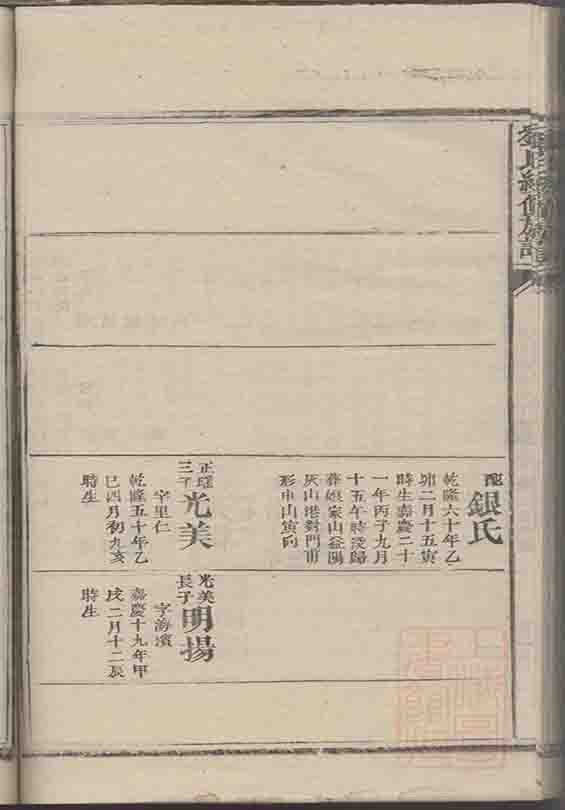 劉氏續修族譜
配
銀氏
乾隆六十年乙
卯二月十五寅
時生嘉慶二十
一年丙子九月
十五午時沒歸
葬娘家山益陽
灰山港對門甫
形申山寅向
正瑤
三子
光美
字里仁
乾隆五十年乙
巳四月初九亥
時生
光美
長子
明揚
字海濱
嘉慶十九年甲
戌二月十二辰
時生